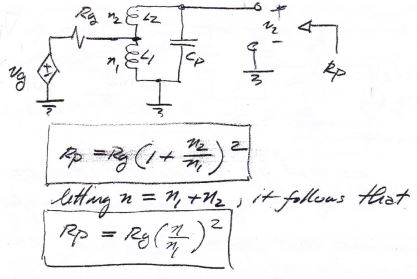 Rg n2 L2
n1 L1 Cp
v2 + -
Rp
vg + -
Rp = Rg (1 + n2/n1)^2
letting n = n1 + n2, it follows that
Rp = Rg (n/n1)^2